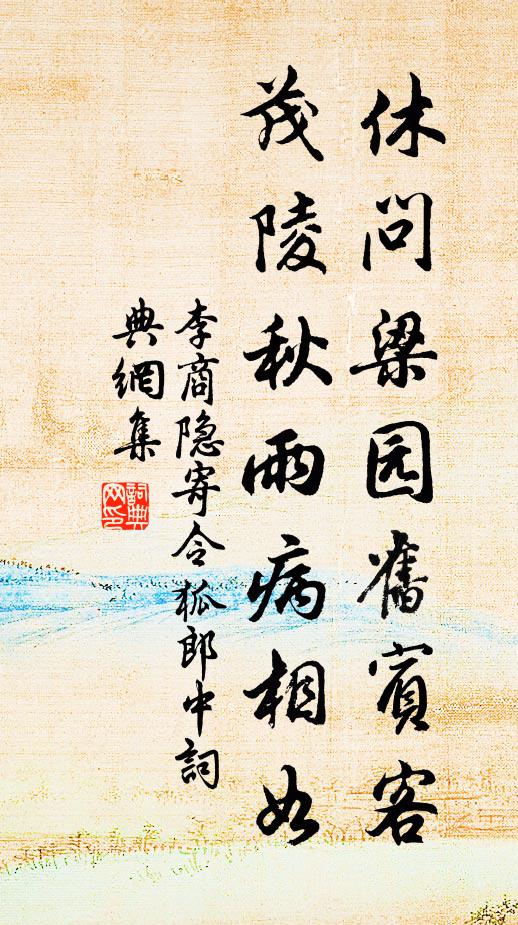 休问梁园舊賓客
茂陵秋雨病相如
李商隐寄令狐郎中詞
典網集
詞典网印